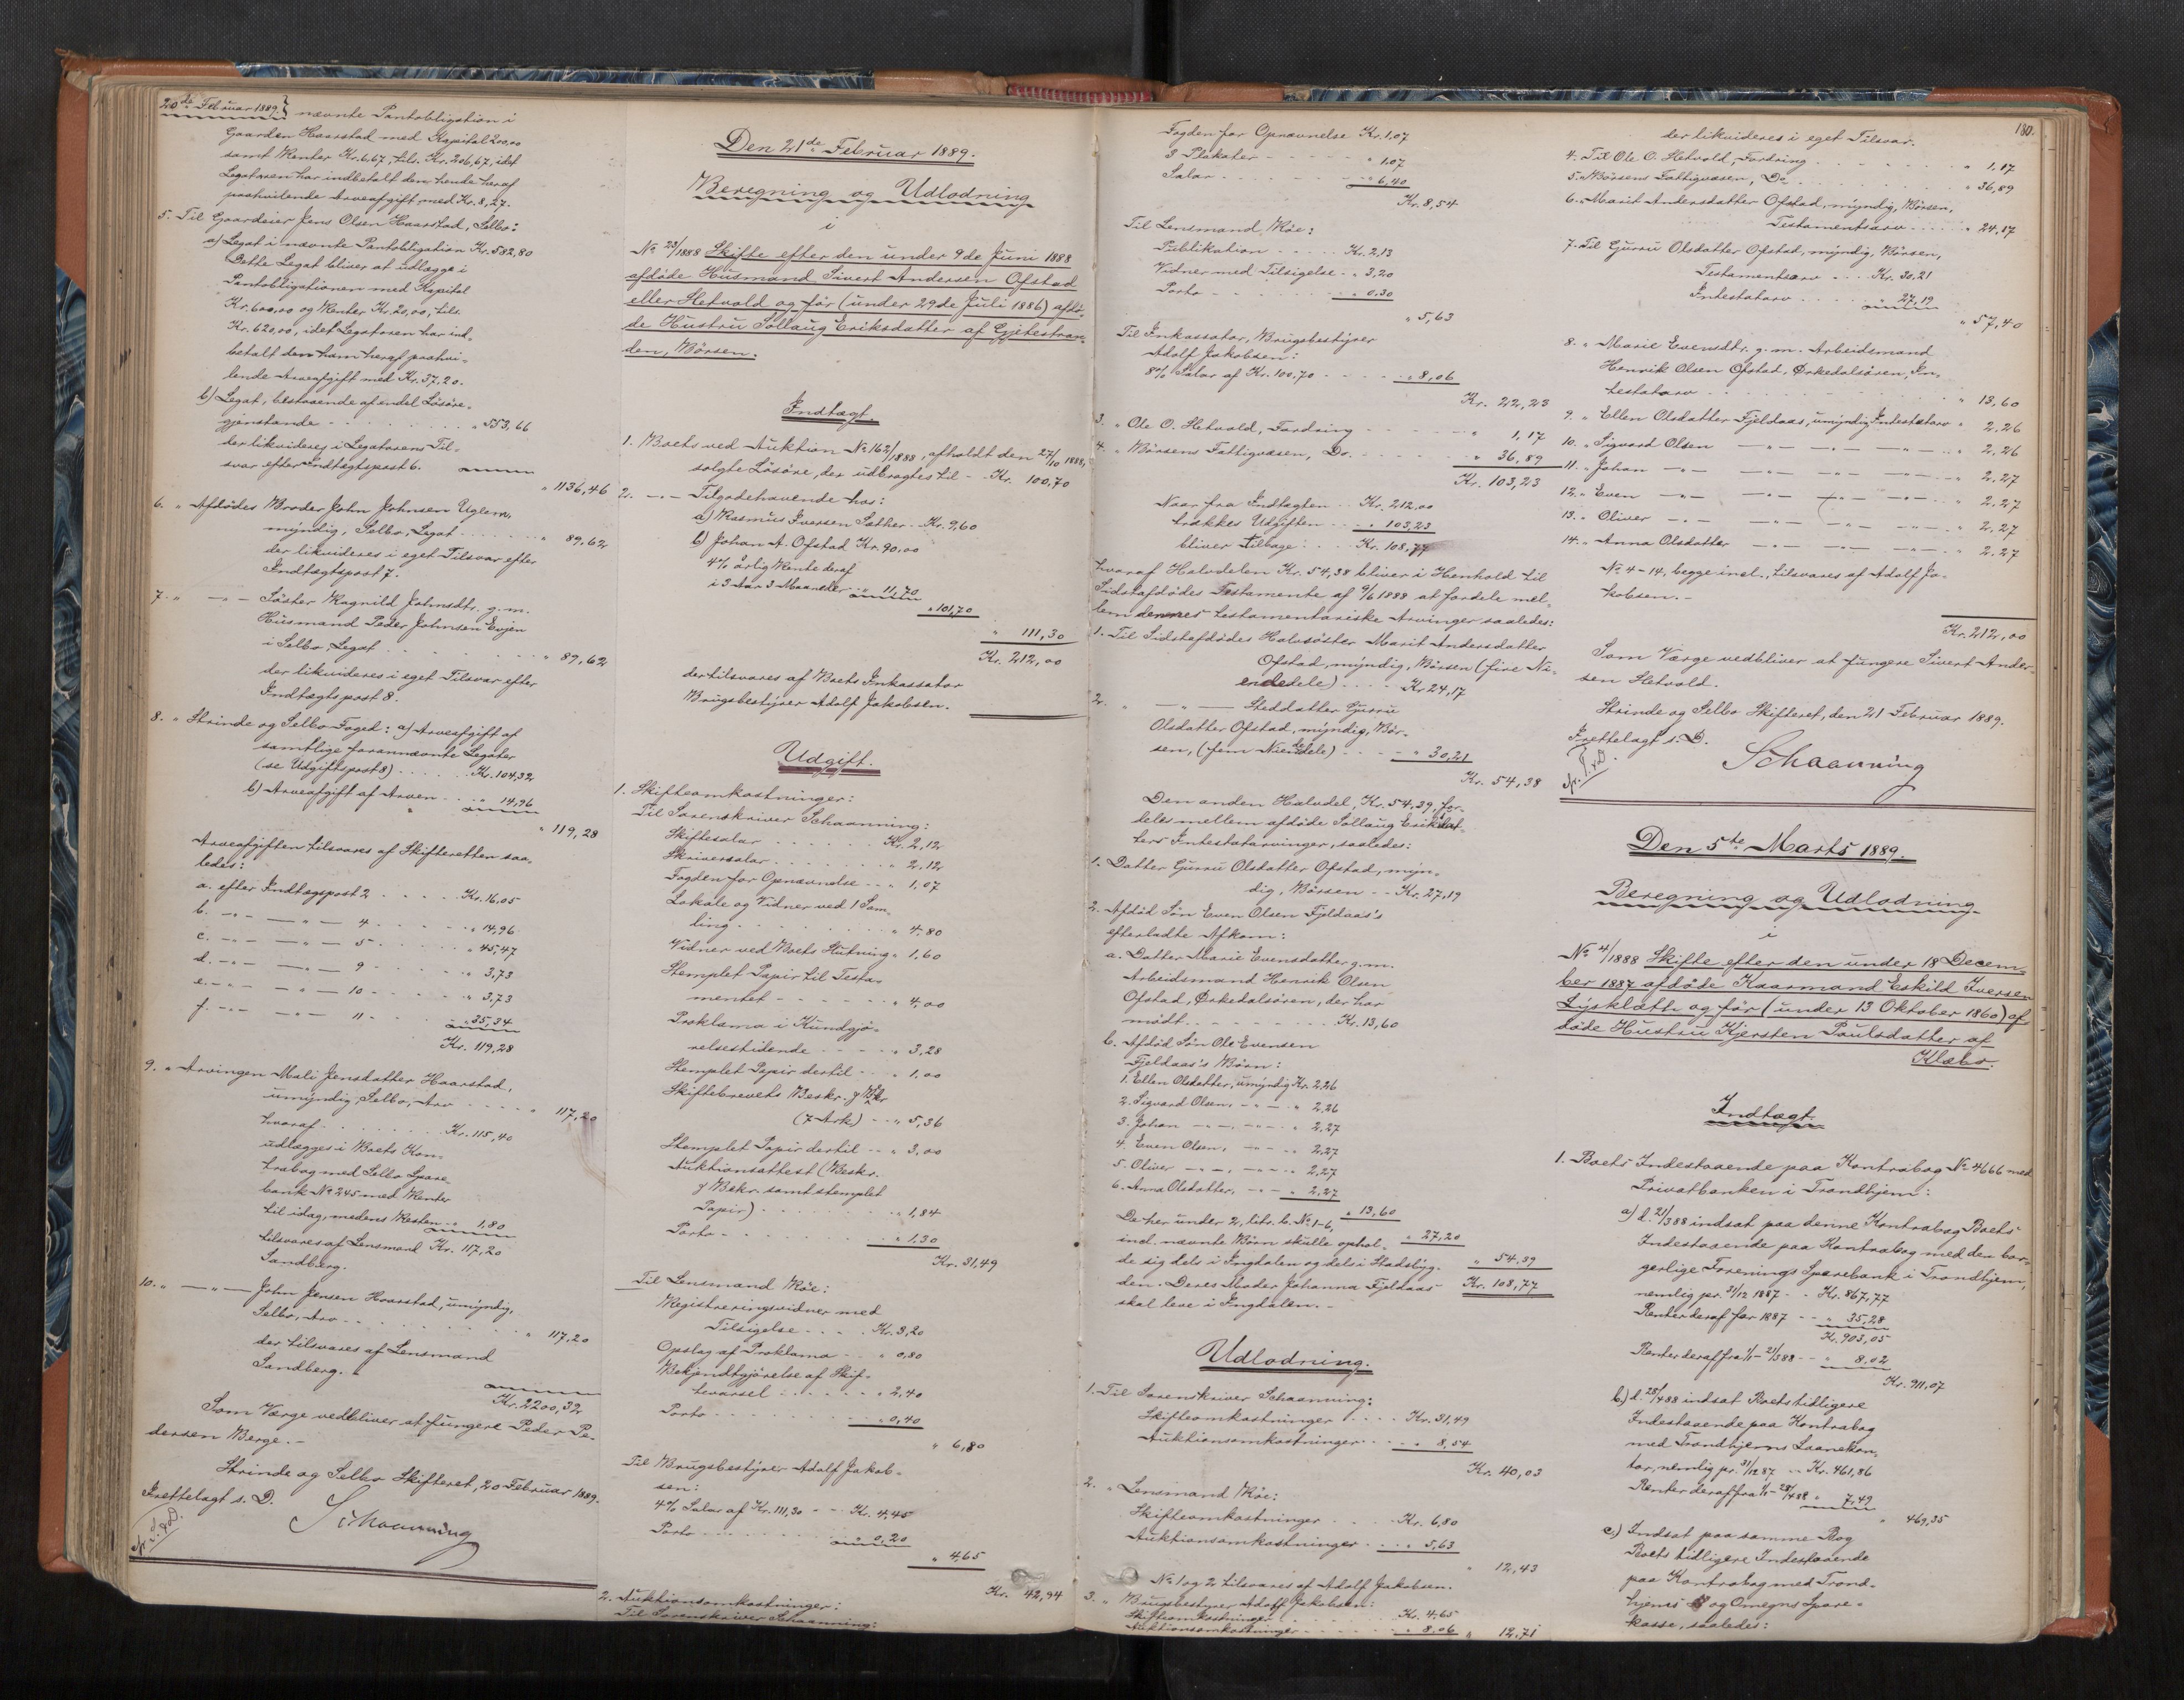 20de Februar 1889.} nævnte Pantobligation i
Gaarden Haarstad med Kapital 200,00
samt Renter Kr. 6,67, tils. Kr. 206,67, idet
Legataren har indbetalt den hende heraf
paahvilende Arveafgift med Kr. 8,27.
5. Til Gaardeier Jens Olsen Haarstad, Selbo:
a) Legat i nævnte Pantobligation Kr. 582,80
Dette Legat bliver at udlægge i
Pantobligationen med Kapital
Kr. 600,00 og Renter Kr. 20,00, tils.
Kr. 620,00, idet Legataren har ind-
betalt den ham heraf paahvi-
lende Arveafgift med Kr. 37,20.
b) Legat, bestaaende af endel Løsøre-
gjenstande " 553,66
der likvideres i Legatarens Til-
svar efter Indtægtspost 6.
" 1136,46
6. " Afdødes Broder John Johnsen Uglem,
myndig, Selbo, Legat " 89,62
der likvideres i eget Tilsvar efter
Indtægtspost 7.
7. " —"— Søster Ragnild Johnsdtr. g. m.
Husmand Peder Johnsen Evjen
i Selbo, Legat " 89,62
der likvideres i eget Tilsvar efter
Indtægtspost 8.
8. " Strinde og Selbo Foged: a) Arveafgift af
samtlige forannævnte Legater
(se Udgiftspost 8) Kr. 104,32
b) Arveafgift af Arven " 14,96
" 119,28
Arveafgiften tilsvares af Skifteretten saa-
ledes:
a. efter Indtægspost 2 Kr. 16,05
b. —"— —"— 4 " 14,96
c. —"— —"— 5 " 45,47
d. —"— —"— 9 " 3,73
e. —"— —"— 10 " 3,73
f. —"— —"— 11 " 35,34
Kr. 119,28
9. " Arvingen Mali Jensdatter Haarstad,
umyndig, Selbo, Arv " 117,20
hvoraf Kr. 115,40
udlægges i Boets Kon-
trabog med Selbo Spare-
bank No 245 med Renter
til idag, medens Resten " 1,80
tilsvares af Lensmand Kr. 117,20
Sandberg.
10. " —"— John Jensen Haarstad, umyndig,
Selbo, Arv " 117,20
der tilsvares af Lensmand
Sandberg.
Kr. 2200,32
Som Værge vedbliver at fungere Peder Pe-
dersen Berge.-
Strinde og Selbo Skifteret, 20 Februar 1889.
Frettelagt s. D.
Schaanning
Den 21de Februar 1889.
Beregning og Udlodning
i
No 23/1888 Skifte efter den under 9de Juni 1888
afdøde Husmand Sivert Andersen Ofstad
eller Hetvold og før (under 29de Juli 1886) afdø-
de Hustru Sollaug Eriksdatter af Gjetestran-
den, Børsen.
Indtægt
1. Boets ved Auktion No 162/1888, afholdt den 27/10 1888,
solgte Løsøre, der udbragtes til Kr. 100,70
2. —"— Tilgodehavende hos:
a) Rasmus Iversen Sæther Kr. 9,60
b) Johan A. Ofstad Kr. 90,00
4% årlig Rente deraf
i 3 Aar 3 Maaneder " 11,70
" 101,70
" 111,30
Kr. 212,00
der tilsvares af Boets Inkassator
Brugsbestyrer Adolf Jakobsen.
Udgift.
1. Skifteomkostninger:
Til Sorenskriver Schaanning:
Skiftesalar Kr. 2,12
Skriversalar " 2,12
Fogden for Opnævnelse " 1,07
Lokale og Vidner ved 1 Sam-
ling " 4,80
Vidner ved Boets Slutning " 1,60
Stemplet Papir til Testa-
mentet " 4,00
Proklama i Kundgjø-
relsestidende " 3,28
Stemplet Papir dertil " 1,00
Skiftebrevets Beskr. & Bekr
(7 Ark) " 5,36
Stemplet Papir dertil " 3,00
Auktionsattest (Beskr.
& Bekr. samt stemplet
Papir) " 1,84
Porto " 1,30
Kr. 31,49
Til Lensmand Røe:
Registreringsvidner med
Tilsigelse Kr. 3,20
Opslag af Proklama " 0,80
Bekjendtgjørelse af Skif-
tevarsel " 2,40
Porto " 0,40
" 6,80
Til Brugsbestyrer Adolf Jakob-
sen:
4% Salar af Kr. 111,30 Kr. 4,45
Porto " 0,20
" 4,65
Kr. 42,94
2. Auktionsomkostninger:
Til Sorenskriver Schaanning:
Fogden for Opnævnelse Kr. 1,07
3 Plakater " 1,07
Salar " 6,40
Kr. 8,54
Til Lensmand Røe:
Publikation Kr. 2,13
Vidner med Tilsigelse " 3,20
Porto " 0,30
" 5,63
Til Inkassator, Brugsbestyrer
Adolf Jakobsen:
8% Salar af Kr. 100,70 " 8,06
Kr. 22,23
3. " Ole O. Hetvold, Fordring " 1,17
4. " Børsens Fattigvæsen, Do. " 36,89
Kr. 103,23
Naar fra Indtægten Kr. 212,00
trækkes Udgiften " 103,23
bliver tilbage Kr. 108,77
hvoraf Halvdelen Kr. 54,38 bliver i Henhold til
Sidstafdødes Testamente af 9/6 1888 at fordele mel-
lem dennes testamentariske Arvinger saaledes:
1. Til Sidstafdødes Halvsøster Marit Andersdatter
Ofstad, myndig, Børsen (fire Ni-
endedele) Kr. 24,17
2. " —"— Steddatter Gurru
Olsdatter Ofstad, myndig, Bør-
sen, (fem Niendedele) " 30,21
Kr. 54,38
Den anden Halvdel, Kr. 54,39, for-
deles mellem afdøde Sollaug Eriksdat-
ters Intestatarvinger, saaledes:
1. Datter Gurru Olsdatter Ofstad, myn-
dig, Børsen Kr. 27,19
2. Afdød Søn Even Olsen Fjeldaas's
efterladte Afkom:
a. Datter Marie Evensdatter g. m.
Arbeidsmand Henrik Olsen
Ofstad, Ørkedalsøren, der har
mødt Kr. 13,60
b. Afdød Søn Ole Evensen
Fjeldaas's Børn:
1. Ellen Olsdatter, umyndig Kr. 2,26
2. Sigvard Olsen, —"— " 2,26
3. Johan —"—, —"— " 2,27
4. Even Olsen, —"— " 2,27
5. Oliver —"—, —"— " 2,27
6. Anna Olsdatter, —"— " 2,27
" 13,60
De her under 2, litr. b. No 1-6, " 27,20
incl. nævnte Børn skulle ophol-
de sig dels i Ingdalen og dels i Stadsbyg- " 54,39
den. Deres Moder Johanna Fjeldaas Kr. 108,77
skal leve i Ingdalen.-
Udlodning.
1. Til Sorenskriver Schaanning:
Skifteomkostninger Kr. 31,49
Auktionsomkostninger " 8,54
Kr. 40,03
2. " Lensmand Røe:
Skifteomkostninger Kr. 6,80
Auktionsomkostninger " 5,63
" 12,43
No 1 og 2 tilsvares af Adolf Jakobsen.
3. " Brugsbestyrer Adolf Jakobsen:
Skifteomkostninger Kr. 4,65
Auktionsomkostninger " 8,06 " 12,71
180.
der likvideres i eget Tilsvar.
4. Til Ole O. Hetvold, Fordring " 1,17
5. " Børsens Fattigvæsen, Do " 36,89
6. " Marit Andersdatter Ofstad, myndig, Børsen,
Testamentsarv " 24,17
7. Til Gurru Olsdatter Ofstad, myndig, Børsen,
Testamentsarv Kr. 30,21
Intestatarv " 27,19
" 57,40
8. " Marie Evensdtr. g. m. Arbeidsmand
Henrik Olsen Ofstad, Ørkedalsøren, In-
testatarv " 13,60
9. " Ellen Olsdatter Fjeldaas, umyndig Intestatarv " 2,26
10. " Sigvard Olsen —"— —"— —"— " 2,26
11. " Johan —"— —"— —"— —"— " 2,27
12. " Even —"— —"— —"— —"— " 2,27
13. " Oliver —"— —"— —"— —"— " 2,27
14. " Anna Olsdatter —"— —"— —"— " 2,27
No 4-14, begge incl., tilsvares af Adolf Ja-
kobsen.-
Kr. 212,00
Som Værge vedbliver at fungere Sivert Ander-
sen Hetvold.
Strinde og Selbo Skifteret, den 21 Februar 1889.
Frettelagt s. D.
Schaanning
Den 5te Marts 1889.
Beregning og Udlodning
i
No 4/1888 Skifte efter den under 18 Decem-
ber 1887 afdøde Kaarmand Eskild Iversen
Lysklætt og før (under 13 Oktober 1860) af
døde Hustru Kjersten Paulsdatter af
Klæbo.
Indtægt
1. Boets Indestaaende paa Kontrabog No 4666 med
Privatbanken i Trondhjem:
a) d. 21/3 88 indsat paa denne Kontrabog Boets
Indestaaende paa Kontrabog med den bor-
gerlige Forenings Sparebank i Trondhjem,
nemlig pr. 31/12 1887 Kr. 867,77
Renter deraf for 1887 " 35,28
Kr. 903,05
Renter deraf fra 1/1 - 21/3 88 " 8,02
Kr. 911,07
b) d. 28/4 88 indsat Boets tidligere
Indestaaende paa Kontrabog
med Trondhjems Laanekon-
tor, nemlig pr. 31/12 87 Kr. 461,86
Renter deraf fra 1/1 - 28/4 88 " 7,49
" 469,35
c.) Indsat paa samme Bog
Boets tidligere Indestaaende
paa Kontrabog med Trond-
hjems og Omegns Spare-
kasse, saaledes: